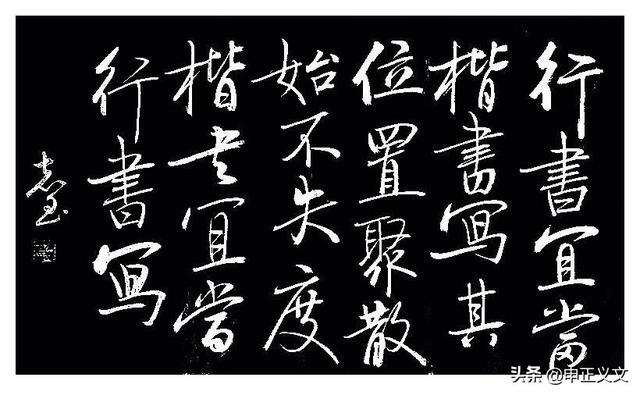 行書宜當
楷書寫其
位置聚散
始不失度
楷書宜當
行書寫
头条 @申正义文